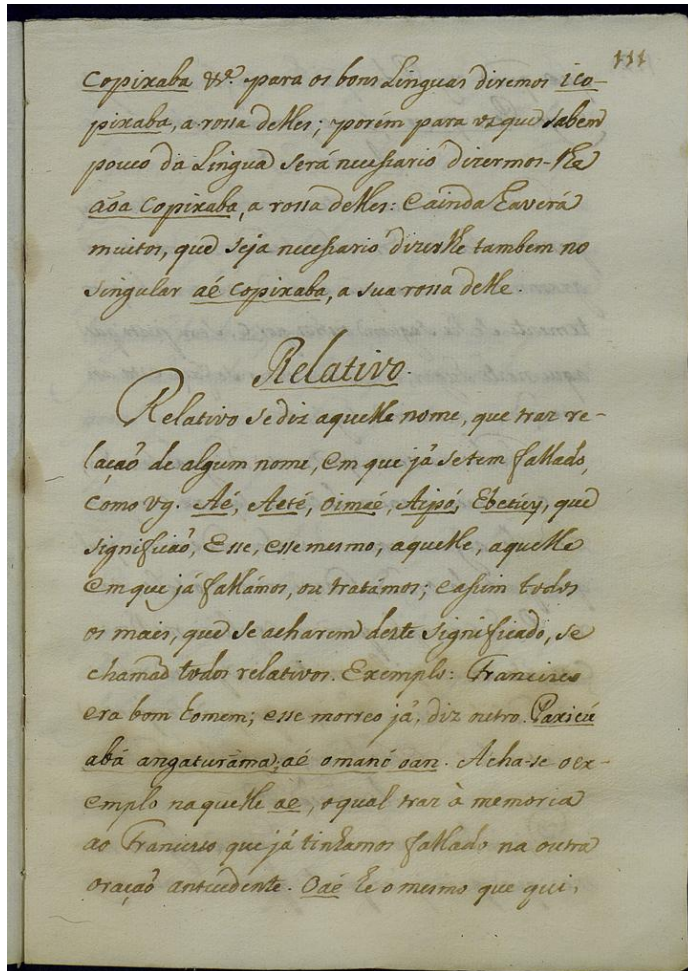 111
Copixaba &c.ª para os bons Linguas diremos ico-
pixaba, a rossa delles; porém para os que sabem
pouco da Lingua será necessario dizermos-lhe
aôa Copixaba, a rossa delles: e ainda haverá
muitos, que seja necessario dizerlhe tambem no
singular aé copixaba, a sua rossa delle.
Relativo.
Relativo se diz aquelle nome, que traz re-
lação de algum nome, em que já se tem fallado,
como vg. Aé, Aeté, Oimaé, Aipó, Ebetiỹ, que
significão, Esse, esse mesmo, aquelle, aquelle
em que já fallámos, ou tratámos; e assim todos
os mais, que se acharem deste significado, se
chamaõ todos relativos. Exemplo: Francisco
era bom homem; esse morreo já, diz outro. Paxicú
abá angaturáma; aé omanó oan. Acha-se o ex-
emplo naquelle aé, o qual traz à memoria
ao Francisco que já tinhamos fallado na outra
oração antecedente. Oaé he o mesmo que qui,